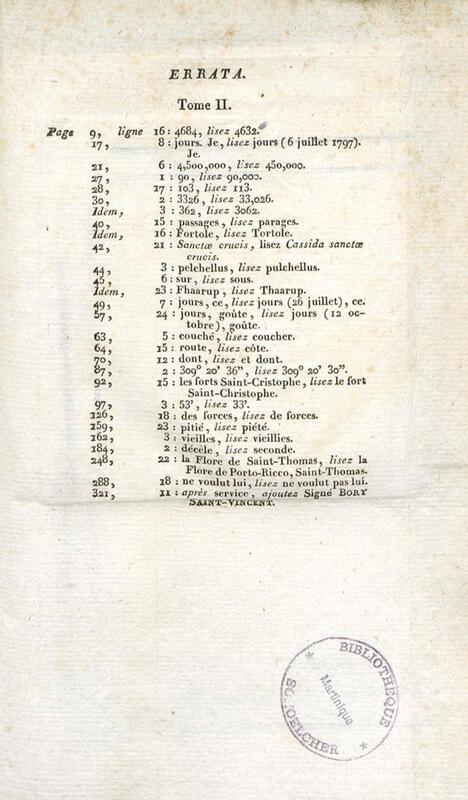 ERRATA.
Tome II.
Page 9, ligne 16 : 4684, lisez 4632.
17, 8 : jours. Je, lisez jours (6 juillet 1797).
Je.
21, 6 : 4,500,000, lisez 450,000.
27, 1 : 90, lisez 90,000.
28, 17 : 103, lisez 113.
30, 2 : 3326, lisez 33,026.
Idem, 3 : 362, lisez 3062.
40, 15 : passages, lisez parages.
Idem, 16 : Fortole, lisez Tortole.
42, 21 : Sanctæ crucis, lisez Cassida sanctæ
crucis.
44, 3 : pelchellus, lisez pulchellus.
45, 6 : sur, lisez sous.
Idem, 23 : Fhaarup, lisez Thaarup.
49, 7 : jours, ce, lisez jours (26 juillet), ce.
57, 24 : jours, goûte, lisez jours (12 oc-
tobre), goûte.
63, 5 : couché, lisez coucher.
64, 15 : route, lisez côte.
70, 12 : dont, lisez et dont.
87, 2 : 309° 20' 36", lisez 309° 20' 30".
92, 15 : les forts Saint-Cristophe, lisez le fort
Saint-Christophe.
97, 3 : 53', lisez 33'.
126, 18 : des forces, lisez de forces.
159, 23 : pitié, lisez piété.
162, 3 : vieilles, lisez vieillies.
184, 2 : décèle, lisez seconde.
248, 22 : la Flore de Saint-Thomas, lisez la
Flore de Porto-Ricco, Saint-Thomas.
288, 18 : ne voulut lui, lisez ne voulut pas lui.
321, 11 : après service, ajoutez Signé BORY
SAINT-VINCENT.
BIBLIOTHEQUE
Martinique
SCHOELCHER